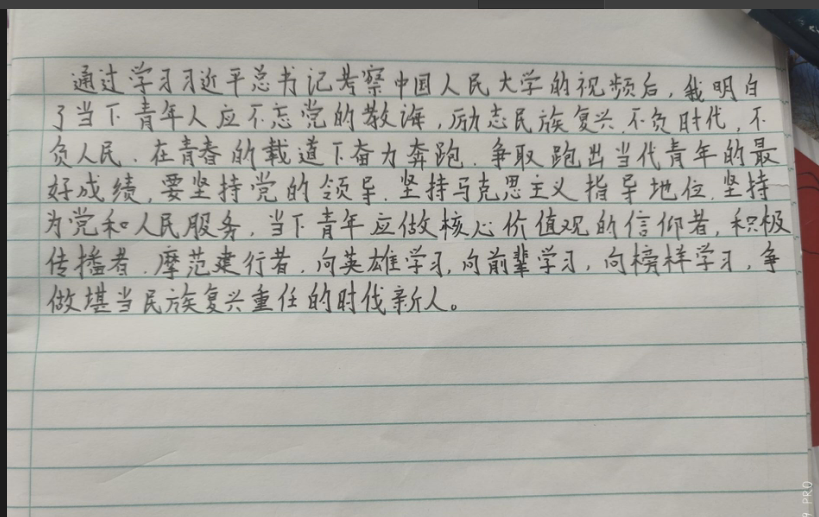 通过学习习近平总书记考察中国人民大学的视频后，我明白
了当下青年人应不忘党的教诲，励志民族复兴，不负时代，不
负人民，在青春的载道下奋力奔跑，争取跑出当代青年的最
好成绩，要坚持党的领导，坚持马克思主义指导地位，坚持
为党和人民服务，当下青年应做核心价值观的信仰者，积极
传播者，摩范建行者，向英雄学习，向前辈学习，向榜样学习，争
做堪当民族复兴重任的时代新人。
9 PRO